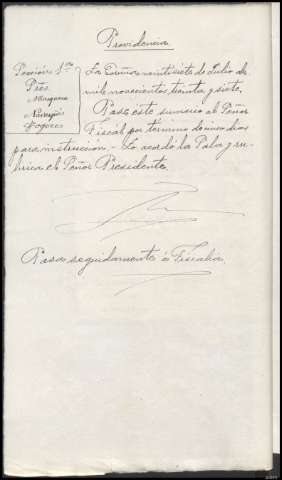 Providencia
Sección 1ª
Pres
Marquina
Navazo
La Coruña veintisiete de Julio de
mil novecientos treinta y siete.
Pase este sumario al Señor
Fiscal por término de nueve dias
para instrucción.- Lo acordó la Sala y ru-
brica el Señor Presidente
Pasa seguidamente á Fiscalia.